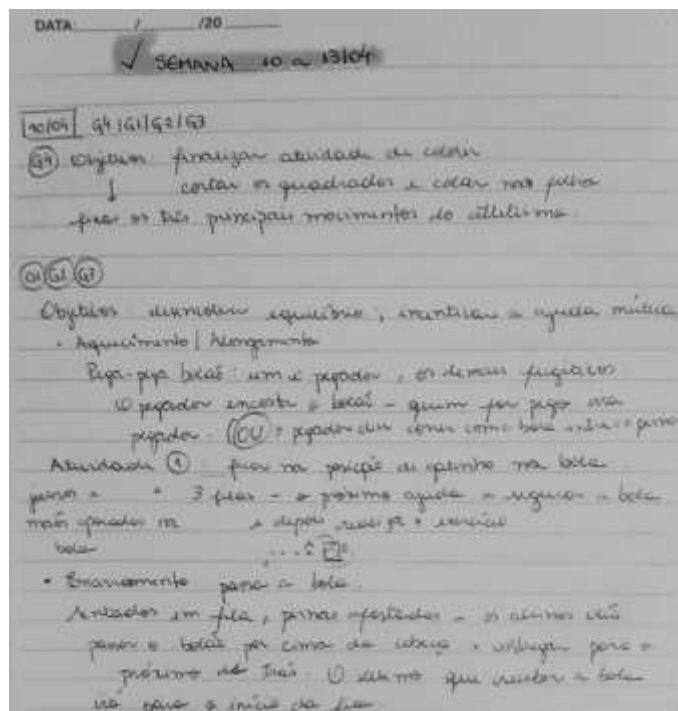 DATA / /20
✓ SEMANA 10 a 13/04
10/04 G4 | G1 | G2 | G3
G4 Objetivo finalizar atividade de colorir
↓ cortar os quadrados e colar na folha
os três principais movimentos do atletismo.
G1 G2 G3
Objetivos desenvolver equilíbrio, incentivar a ajuda mútua
• Aquecimento | Alongamento
Pega-pega bolas: um é pegador, os demais fugitivos
O pegador encosta a bola – quem for pego vira
pegador. OU o pegador deve correr com a bola
Atividade 1: ficar na posição de na bola
• 3 filas – o próximo ajuda a segurar a bola
mãos apoiadas na e depois realiza o exercício
bola
• Encerramento passa a bola.
Sentados em fila, pernas afastadas – os alunos vão
passar a bola por cima da cabeça e entregar para o
próximo de trás. O último que receber a bola
irá para o início da fila.